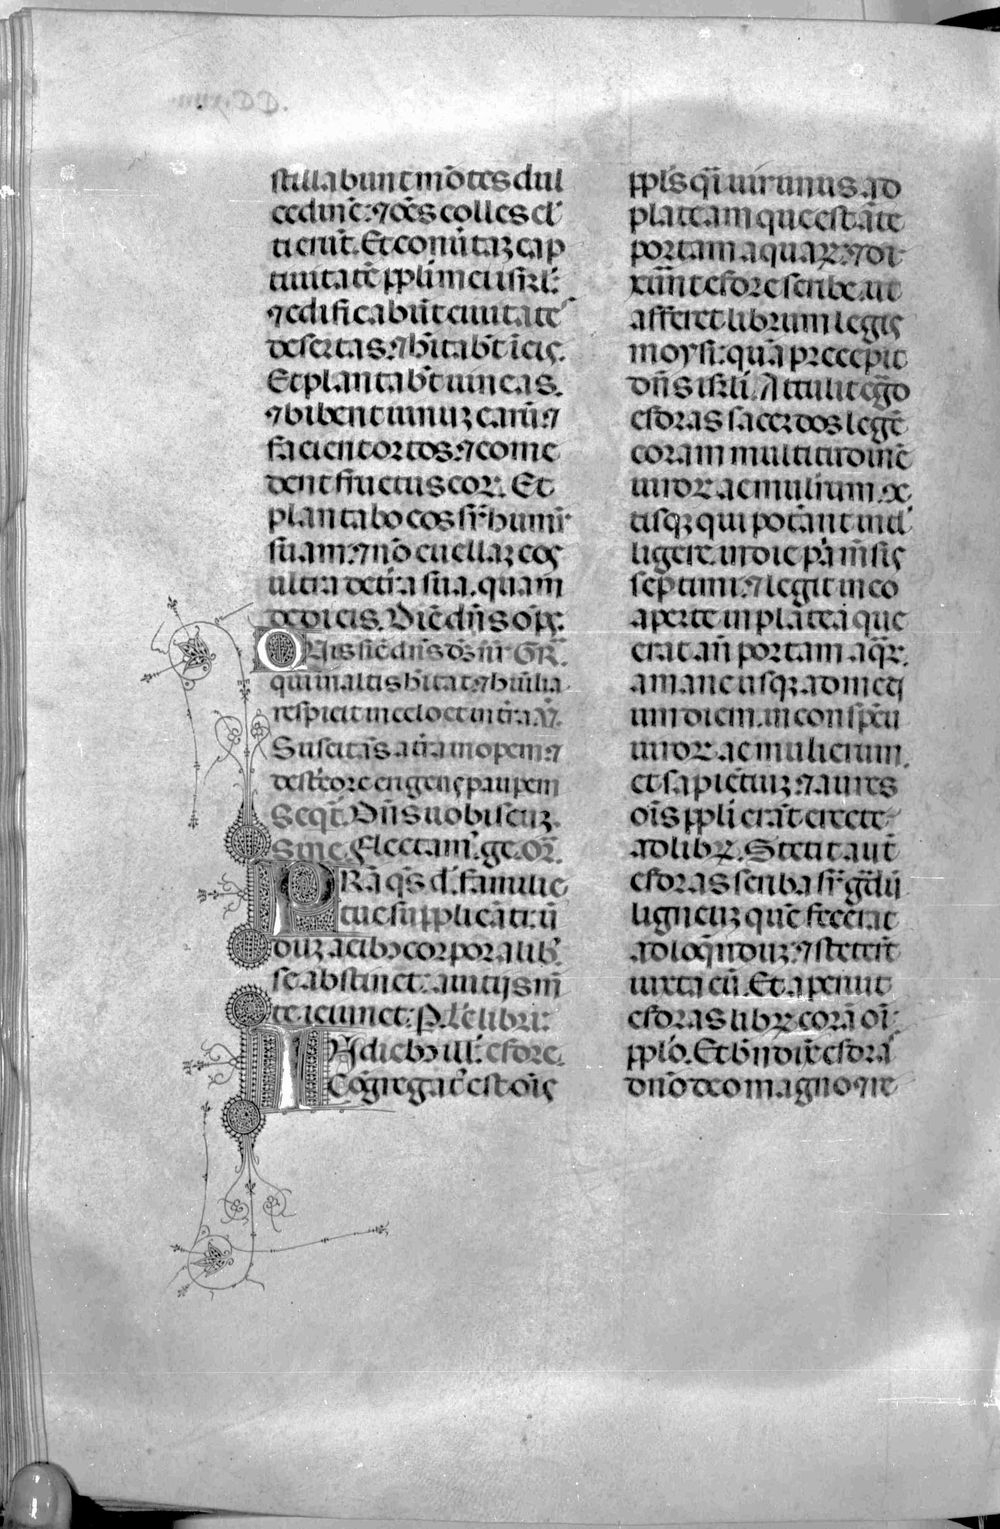 stillabunt mōtes dul
cedinē: ⁊ oēs colles cl̄
ti erūt. Et conūtaꝫ cap
tiuitatē ppl̄i mei isrl̄:
⁊ edificabūt ciuitate
desertas: ⁊ hītabt̄ ī eis.
Et plantabt̄ uineas.
⁊ bibent uinuꝫ earū: ⁊
facient ortos: ⁊ come
dent fructus eoꝝ. Et
plantabo eos sr̄ humū
suam: ⁊ nō euellaꝫ eos
ultra de tr̄a sua. quam
dedi eis. Dīc dn̄s om̄ps.
Quis sic dn̄s ds̄ nr̄ GR̄.
qui in altis hītat: ⁊ humilia
respicit in celo et in tr̄a. V.
Suscitās a tr̄a inopem: ⁊
de stēore erigens pauꝑem
Seqt̄. Dn̄s uobiscuꝫ.
Sine. Flectam̄. ge. Or̄.
PRā qs̄ d. familie
tue supplicāti: ū
duꝫ a cibꝫ corporalibꝫ
se abstinet: a uitijs mē
te ieiunet: P. Lc̄ libri:
IN diebꝫ ill̄: esdre.
Cōgregat' est oīs
ppl̄s qi uir unus ad
plateam que est āte
portam aquaꝝ: ⁊ di
xerūt esdre scribe ut
afferet librum legis
moysi: quā precepit
dn̄s isrl̄i. Attulit ego
esdras sacerdos legē
coram multitudine
uiroꝝ ac mulierum. ⁊
ctisqꝫ qui potāt intel
ligere. in die pa mēsis
septimi: ⁊ legit in eo
aperte in platea que
erat an̄ portam aqr̄.
a mane usqꝫ ad medi
um diem. in conspcū
uiroꝝ ac mulierum.
et sapiētiuꝫ: ⁊ aures
oīs ppl̄i erāt erecte
ad librꝫ. Stetit aut̄
esdras scriba sr̄ gdū
ligneuꝫ quē fecerat
ad loqndum: ⁊ steterūt
iuxta eū. Et aperuit
esdras librꝫ corā oī
pplo. Et bn̄dixit esdra
dn̄o deo magno: ⁊ re